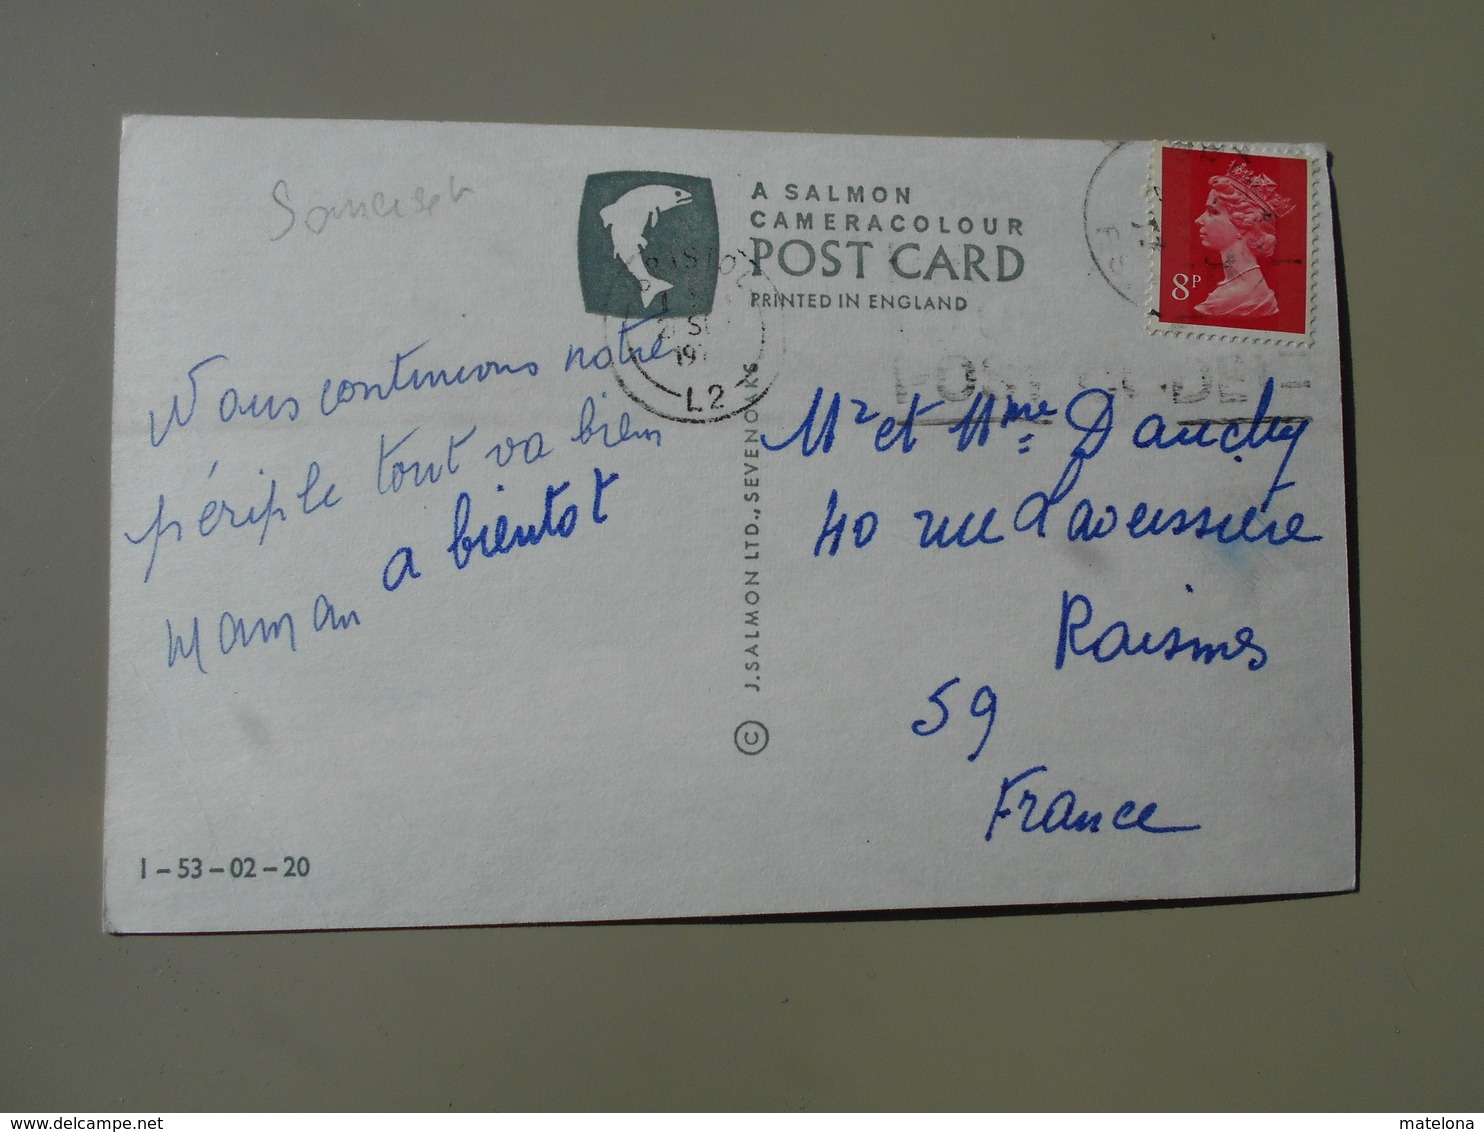 Somerset
A SALMON
CAMERACOLOUR
POST CARD
PRINTED IN ENGLAND
8P
BRISTOL
197
L2
Nous continuons notre
périple tout va bien
a bientot
Maman
© J. SALMON LTD., SEVENOAKS
Mr et Mme Dauchy
40 rue Laveissière
Raismes
59
France
1-53-02-20
Delcampe.net
matelona